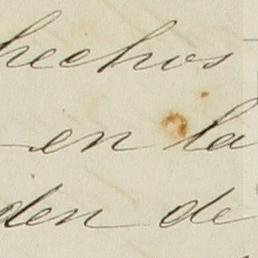 hechos
en la
den de